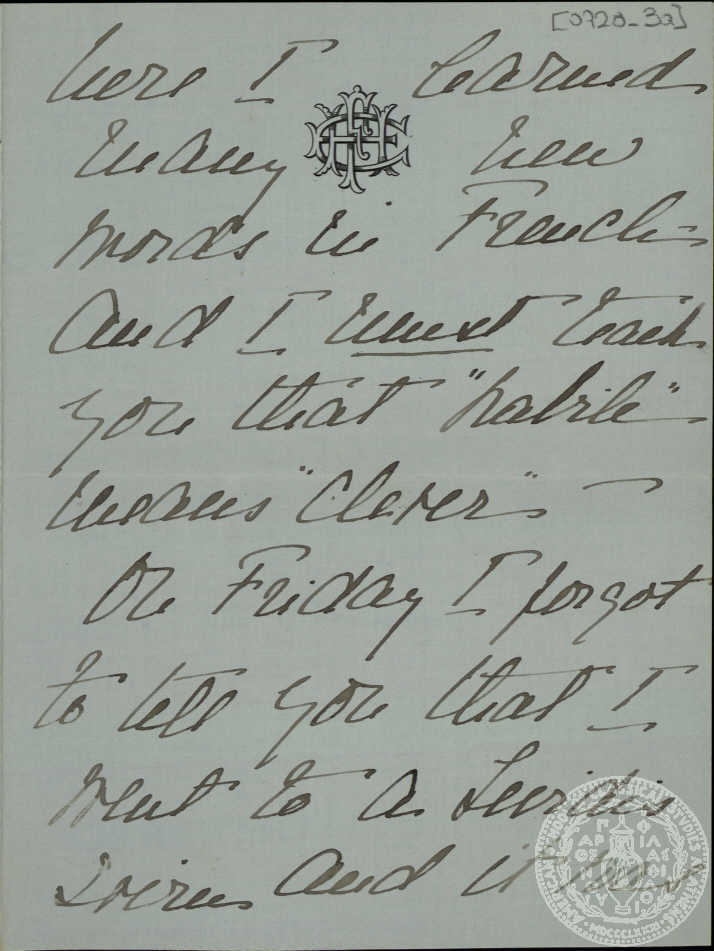 [0720_3a]
here I learned
many new
words in French
and I must teach
you that "habile"
means "clever" —
On Friday I forgot
to tell you that I
went to a
soirée and it